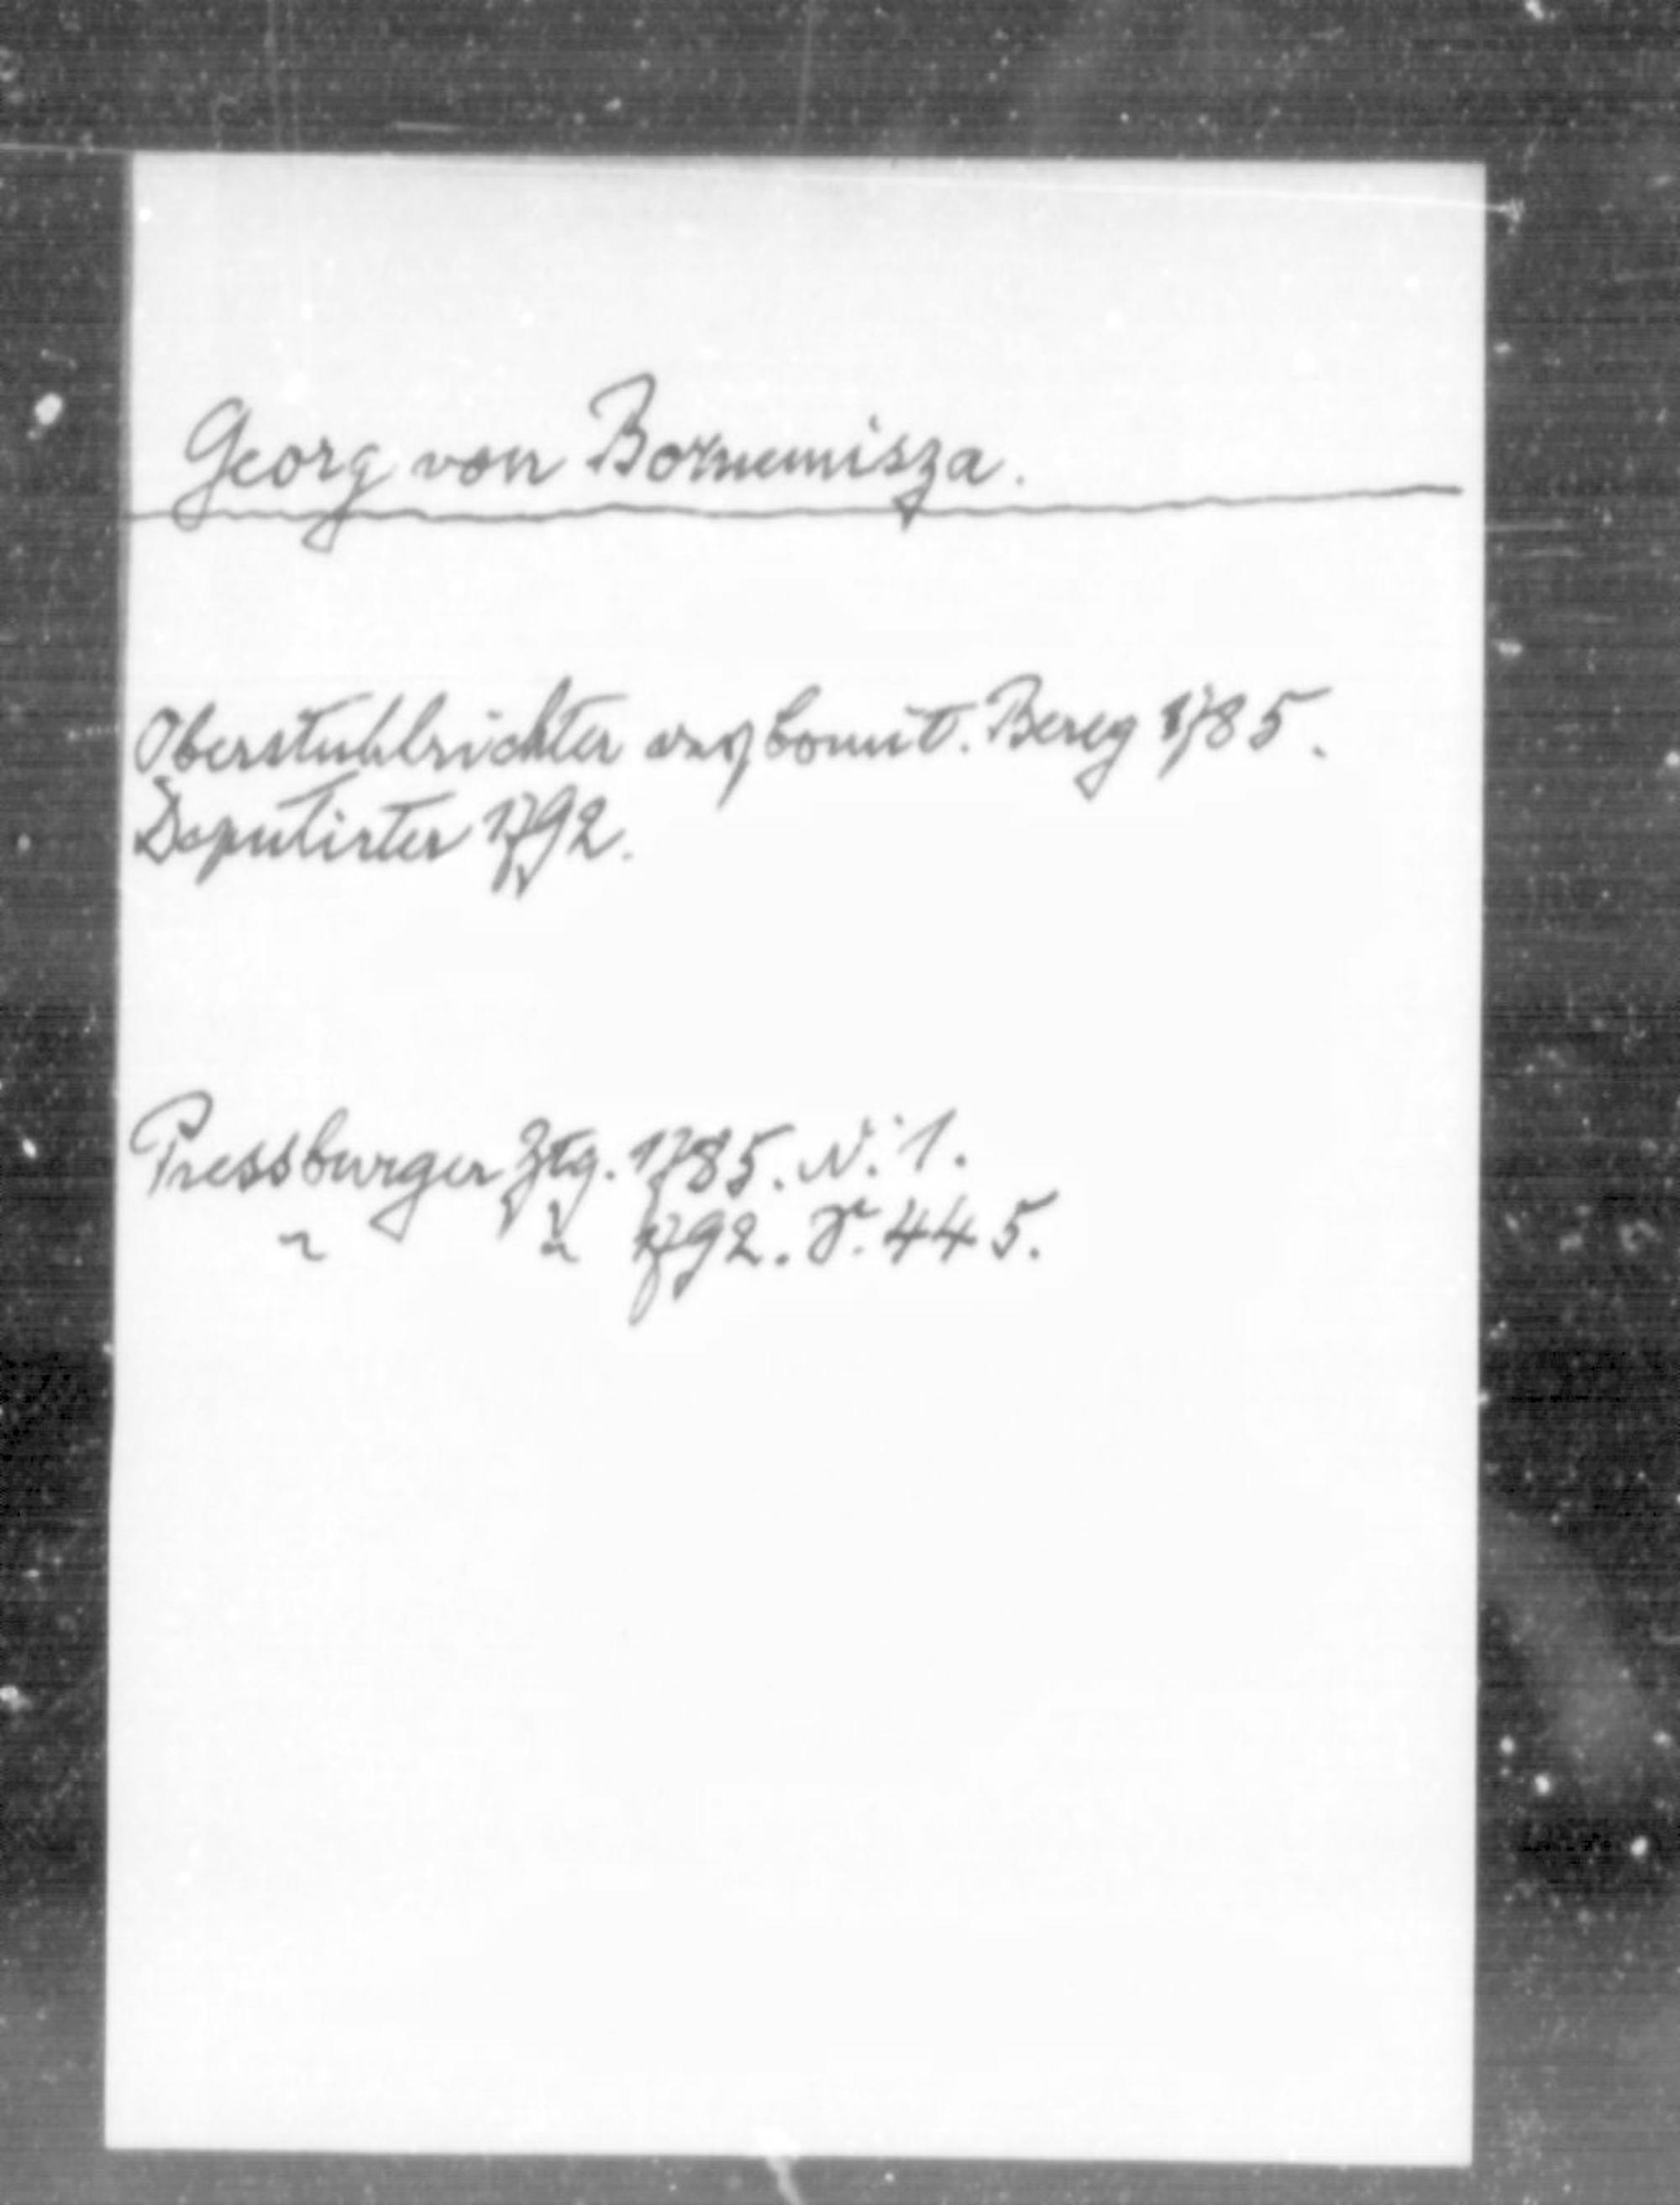 Georg von Bornemisza.
Oberstuhlrichter Comit. Bereg 1785.
Deputirter 1792.
Pressburger Ztg. 1785. N. 1.
" " 1792. S. 445.